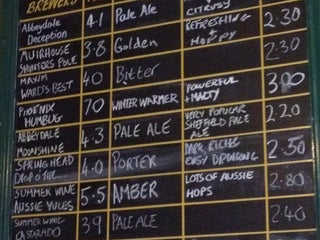 BREWERS
Abbeydale Deception 4.1 Pale Ale CITRUSY REFRESHING + HOPPY 2.30
MUIRHOUSE SHINTERS POLE 3.8 Golden 2.30
MAXIM WARDS BEST 40 Bitter
PHOENIX HUMBUG 70 WINTER WARMER POWERFUL + MALTY 3.00
ABBEYDALE MOONSHINE 4.3 PALE ALE VERY POPULAR SHEFFIELD PALE ALE 2.20
SPRING HEAD DROP O THE... 4.0 PORTER DARK, RICH EASY DRINKING 2.50
SUMMER WINE AUSSIE YULES 5.5 AMBER LOTS OF AUSSIE HOPS 2.80
SUMMER WINE CASTARADO 39 PALE ALE 240